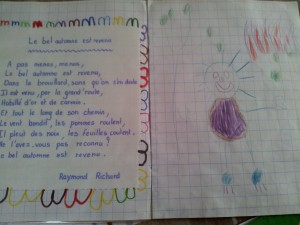 Le bel automne est revenu
A pas menus, menus,
Le bel automne est revenu,
Dans le brouillard, sans qu'on s'en doute
Il est venu, par la grand'route,
Habillé d'or et de carmin.
Et tout le long de son chemin,
Le vent bondit, les pommes roulent,
Il pleut des noix, les feuilles croulent.
Ne l'avez-vous pas reconnu?
Le bel automne est revenu.
Raymond Richard